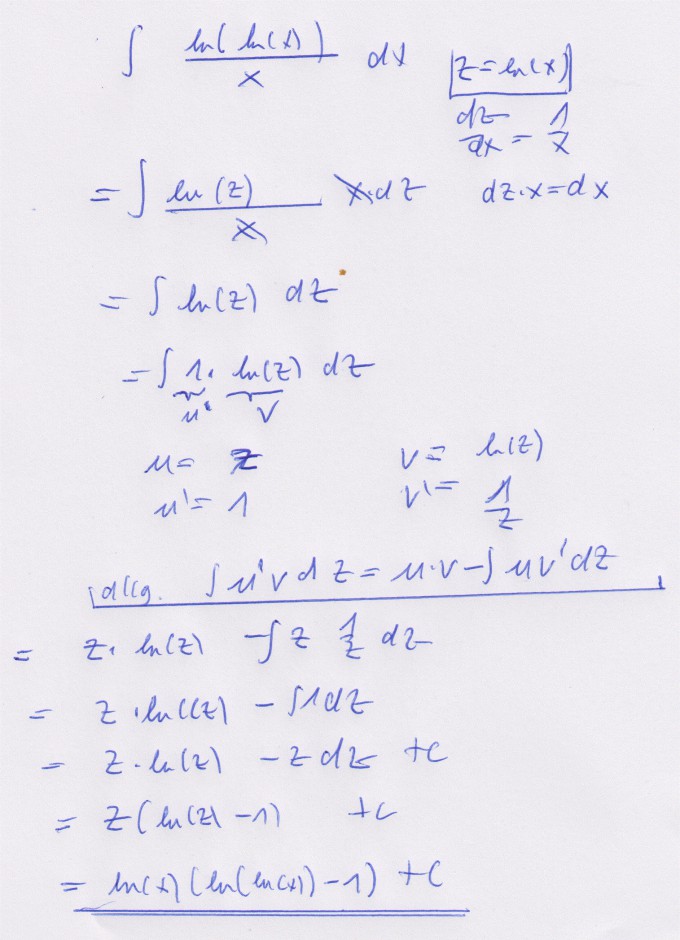 ∫ ln(ln(x)) / x dx   z = ln(x)
dz/dx = 1/x
= ∫ ln(z) / x · x·dz   dz·x = dx
= ∫ ln(z) dz
= ∫ 1 · ln(z) dz
u'   v
u = z   v = ln(z)
u' = 1   v' = 1/z
allg. ∫ u'v dz = u·v - ∫ u v' dz
= z · ln(z) - ∫ z 1/z dz
= z · ln(z) - ∫ 1 dz
= z · ln(z) - z dz + c
= z (ln(z) - 1) + c
= ln(x) (ln(ln(x)) - 1) + c